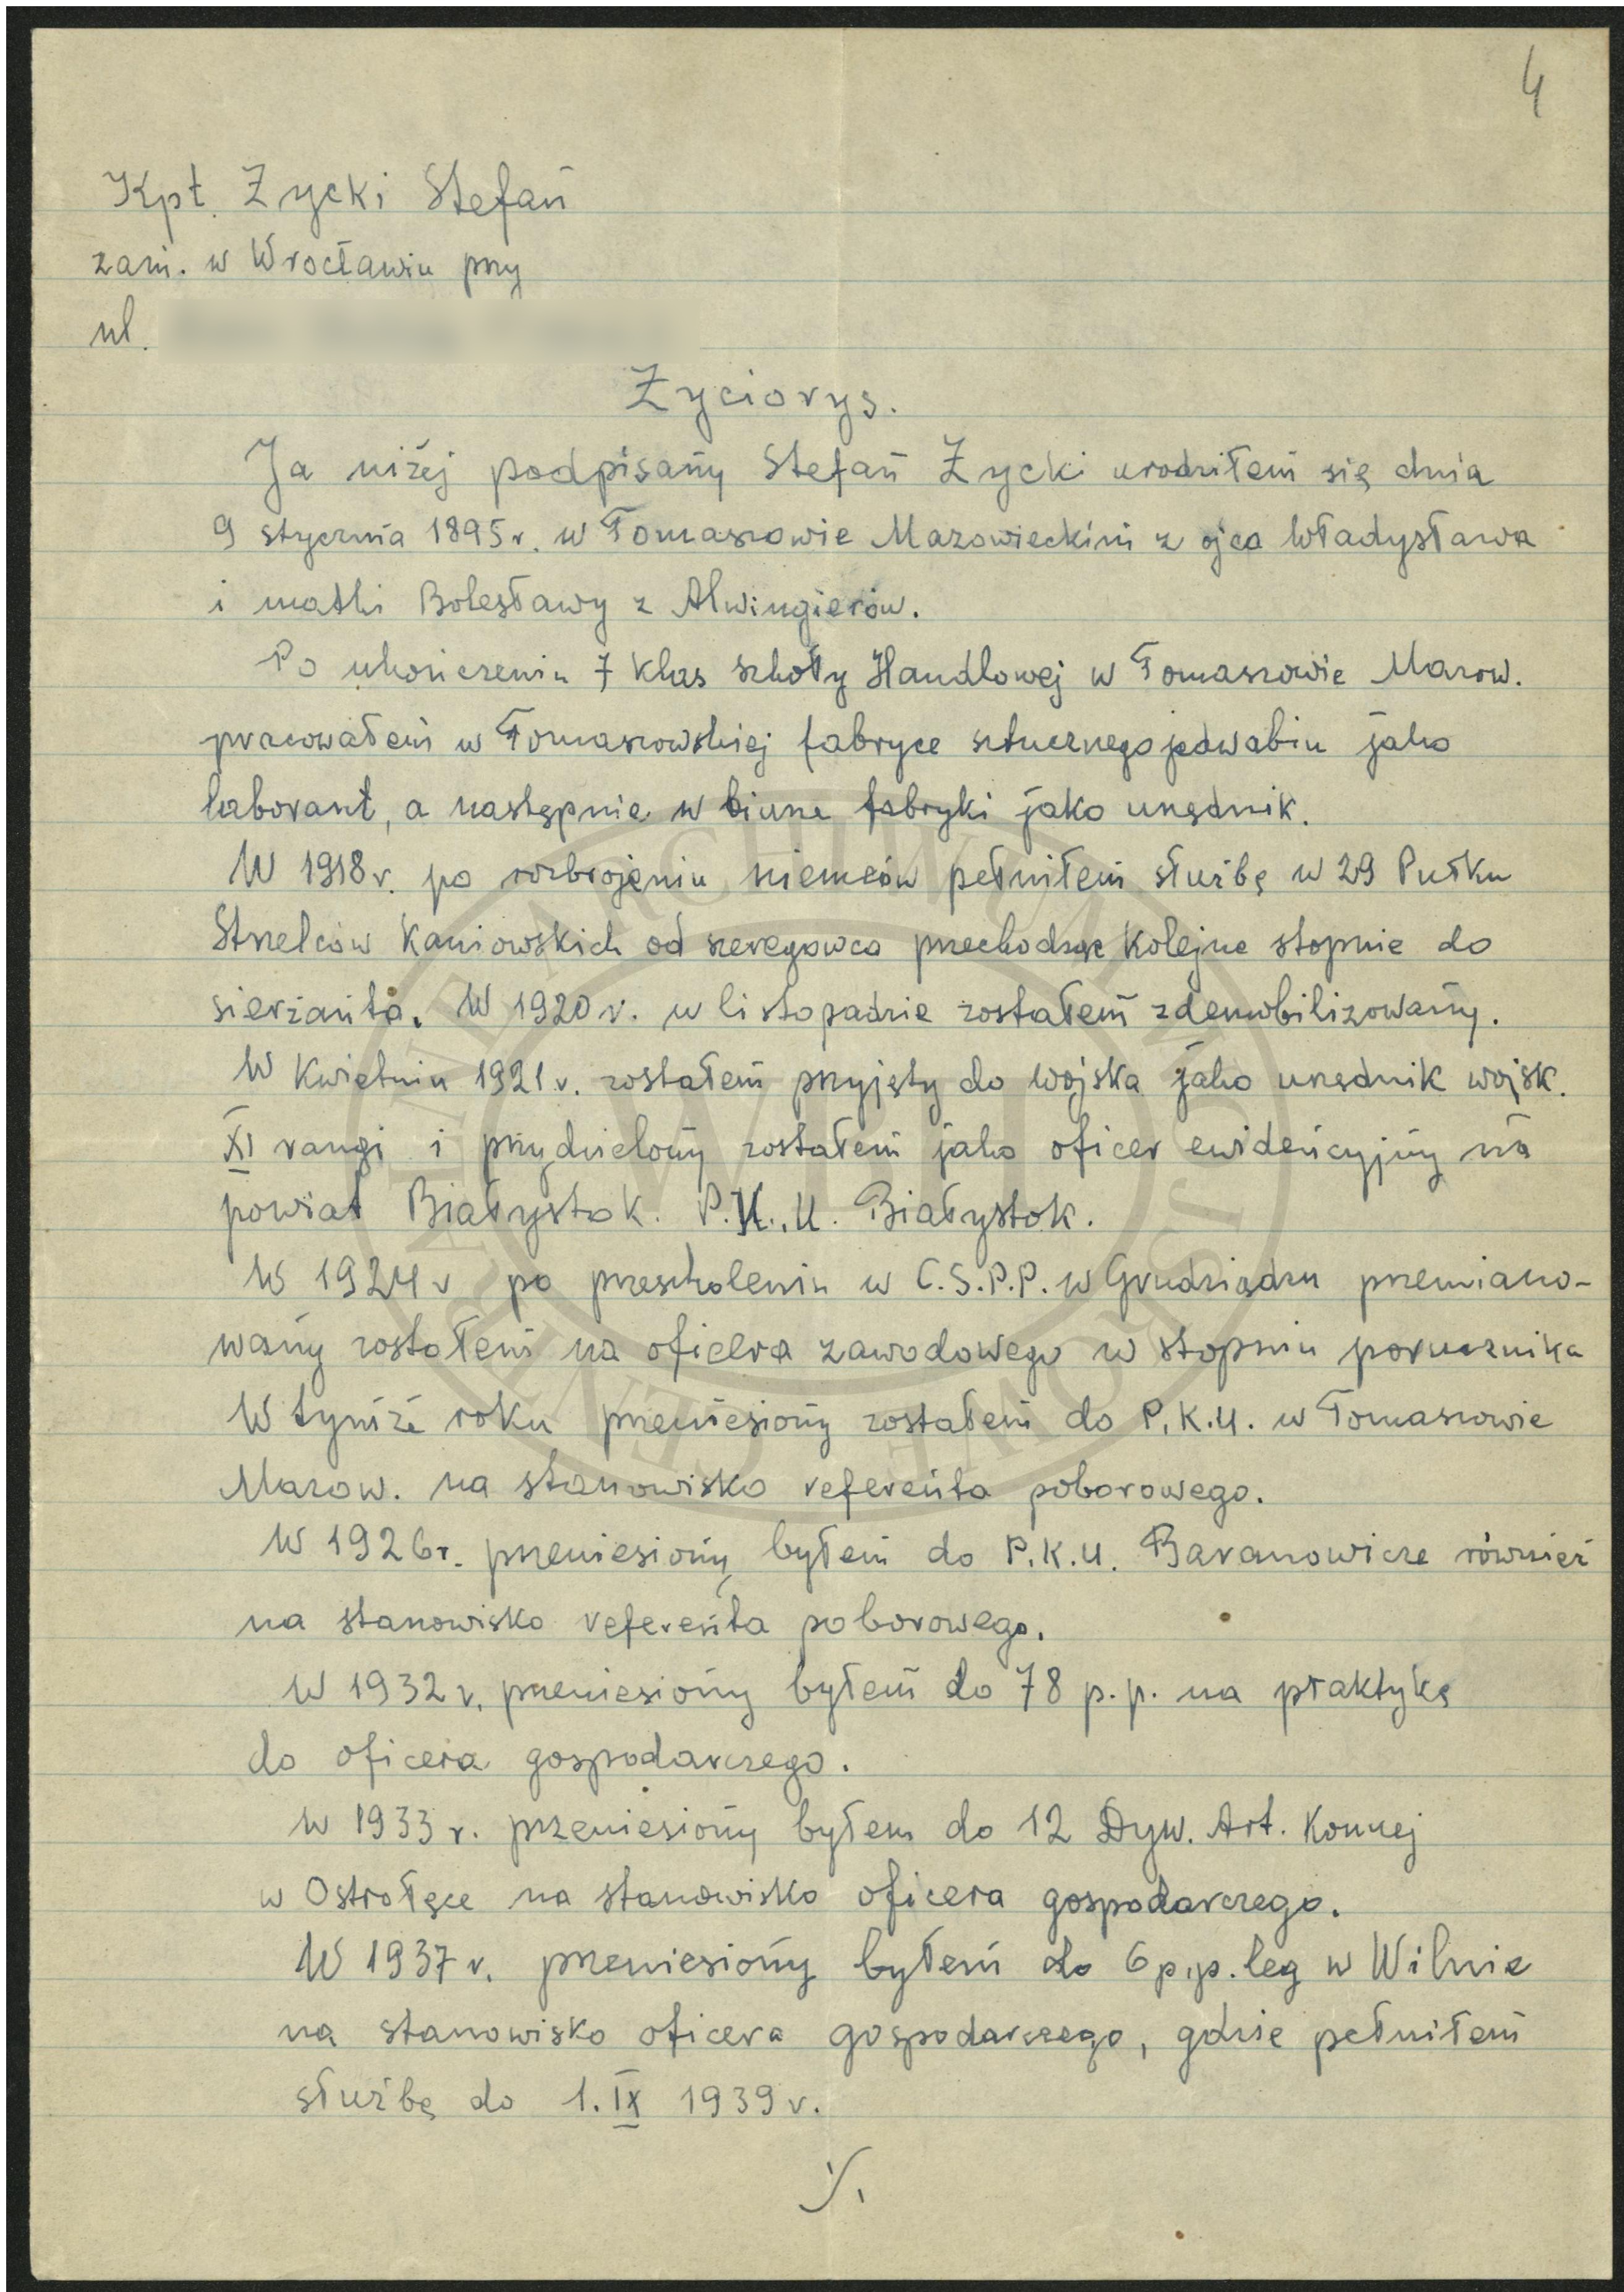 4
Kpt. Zycki Stefan
zam. w Wrocławiu przy
ul.
Życiorys.
Ja niżej podpisany Stefan Życki urodziłem się dnia
9 stycznia 1895 r. w Tomaszowie Mazowieckim z ojca Władysława
i matki Bolesławy z Alwingierów.
Po ukończeniu 7 klas szkoły Handlowej w Tomaszowie Mazow.
pracowałem w Tomaszowskiej fabryce sztucznego jedwabiu jako
laborant, a następnie w biurze fabryki jako urzędnik.
W 1918 r. po rozbrojeniu niemców pełniłem służbę w 29 Pułku
Strzelców Kaniowskich od szeregowca przechodząc kolejne stopnie do
sierżanta. W 1920 r. w listopadzie zostałem zdemobilizowany.
W Kwietniu 1921 r. zostałem przyjęty do wojska jako urzędnik wojsk.
XI rangi i przydzielony zostałem jako oficer ewidencyjny na
powiat Białystok. P.K.U. Białystok.
W 1924 r po przeszkoleniu w C.S.P.P. w Grudziądzu przemiano-
wany zostałem na oficera zawodowego w stopniu porucznika
W tymże roku przeniesiony zostałem do P.K.U. w Tomaszowie
Mazow. na stanowisko referenta poborowego.
W 1926 r. przeniesiony byłem do P.K.U. Baranowicze również
na stanowisko referenta poborowego.
W 1932 r. przeniesiony byłem do 78 p.p. na praktykę
do oficera gospodarczego.
W 1933 r. przeniesiony byłem do 12 Dyw. Art. Konnej
w Ostrołęce na stanowisko oficera gospodarczego.
W 1937 r. przeniesiony byłem do 6 p.p. leg w Wilnie
na stanowisko oficera gospodarczego, gdzie pełniłem
służbę do 1. IX 1939 r.
./.